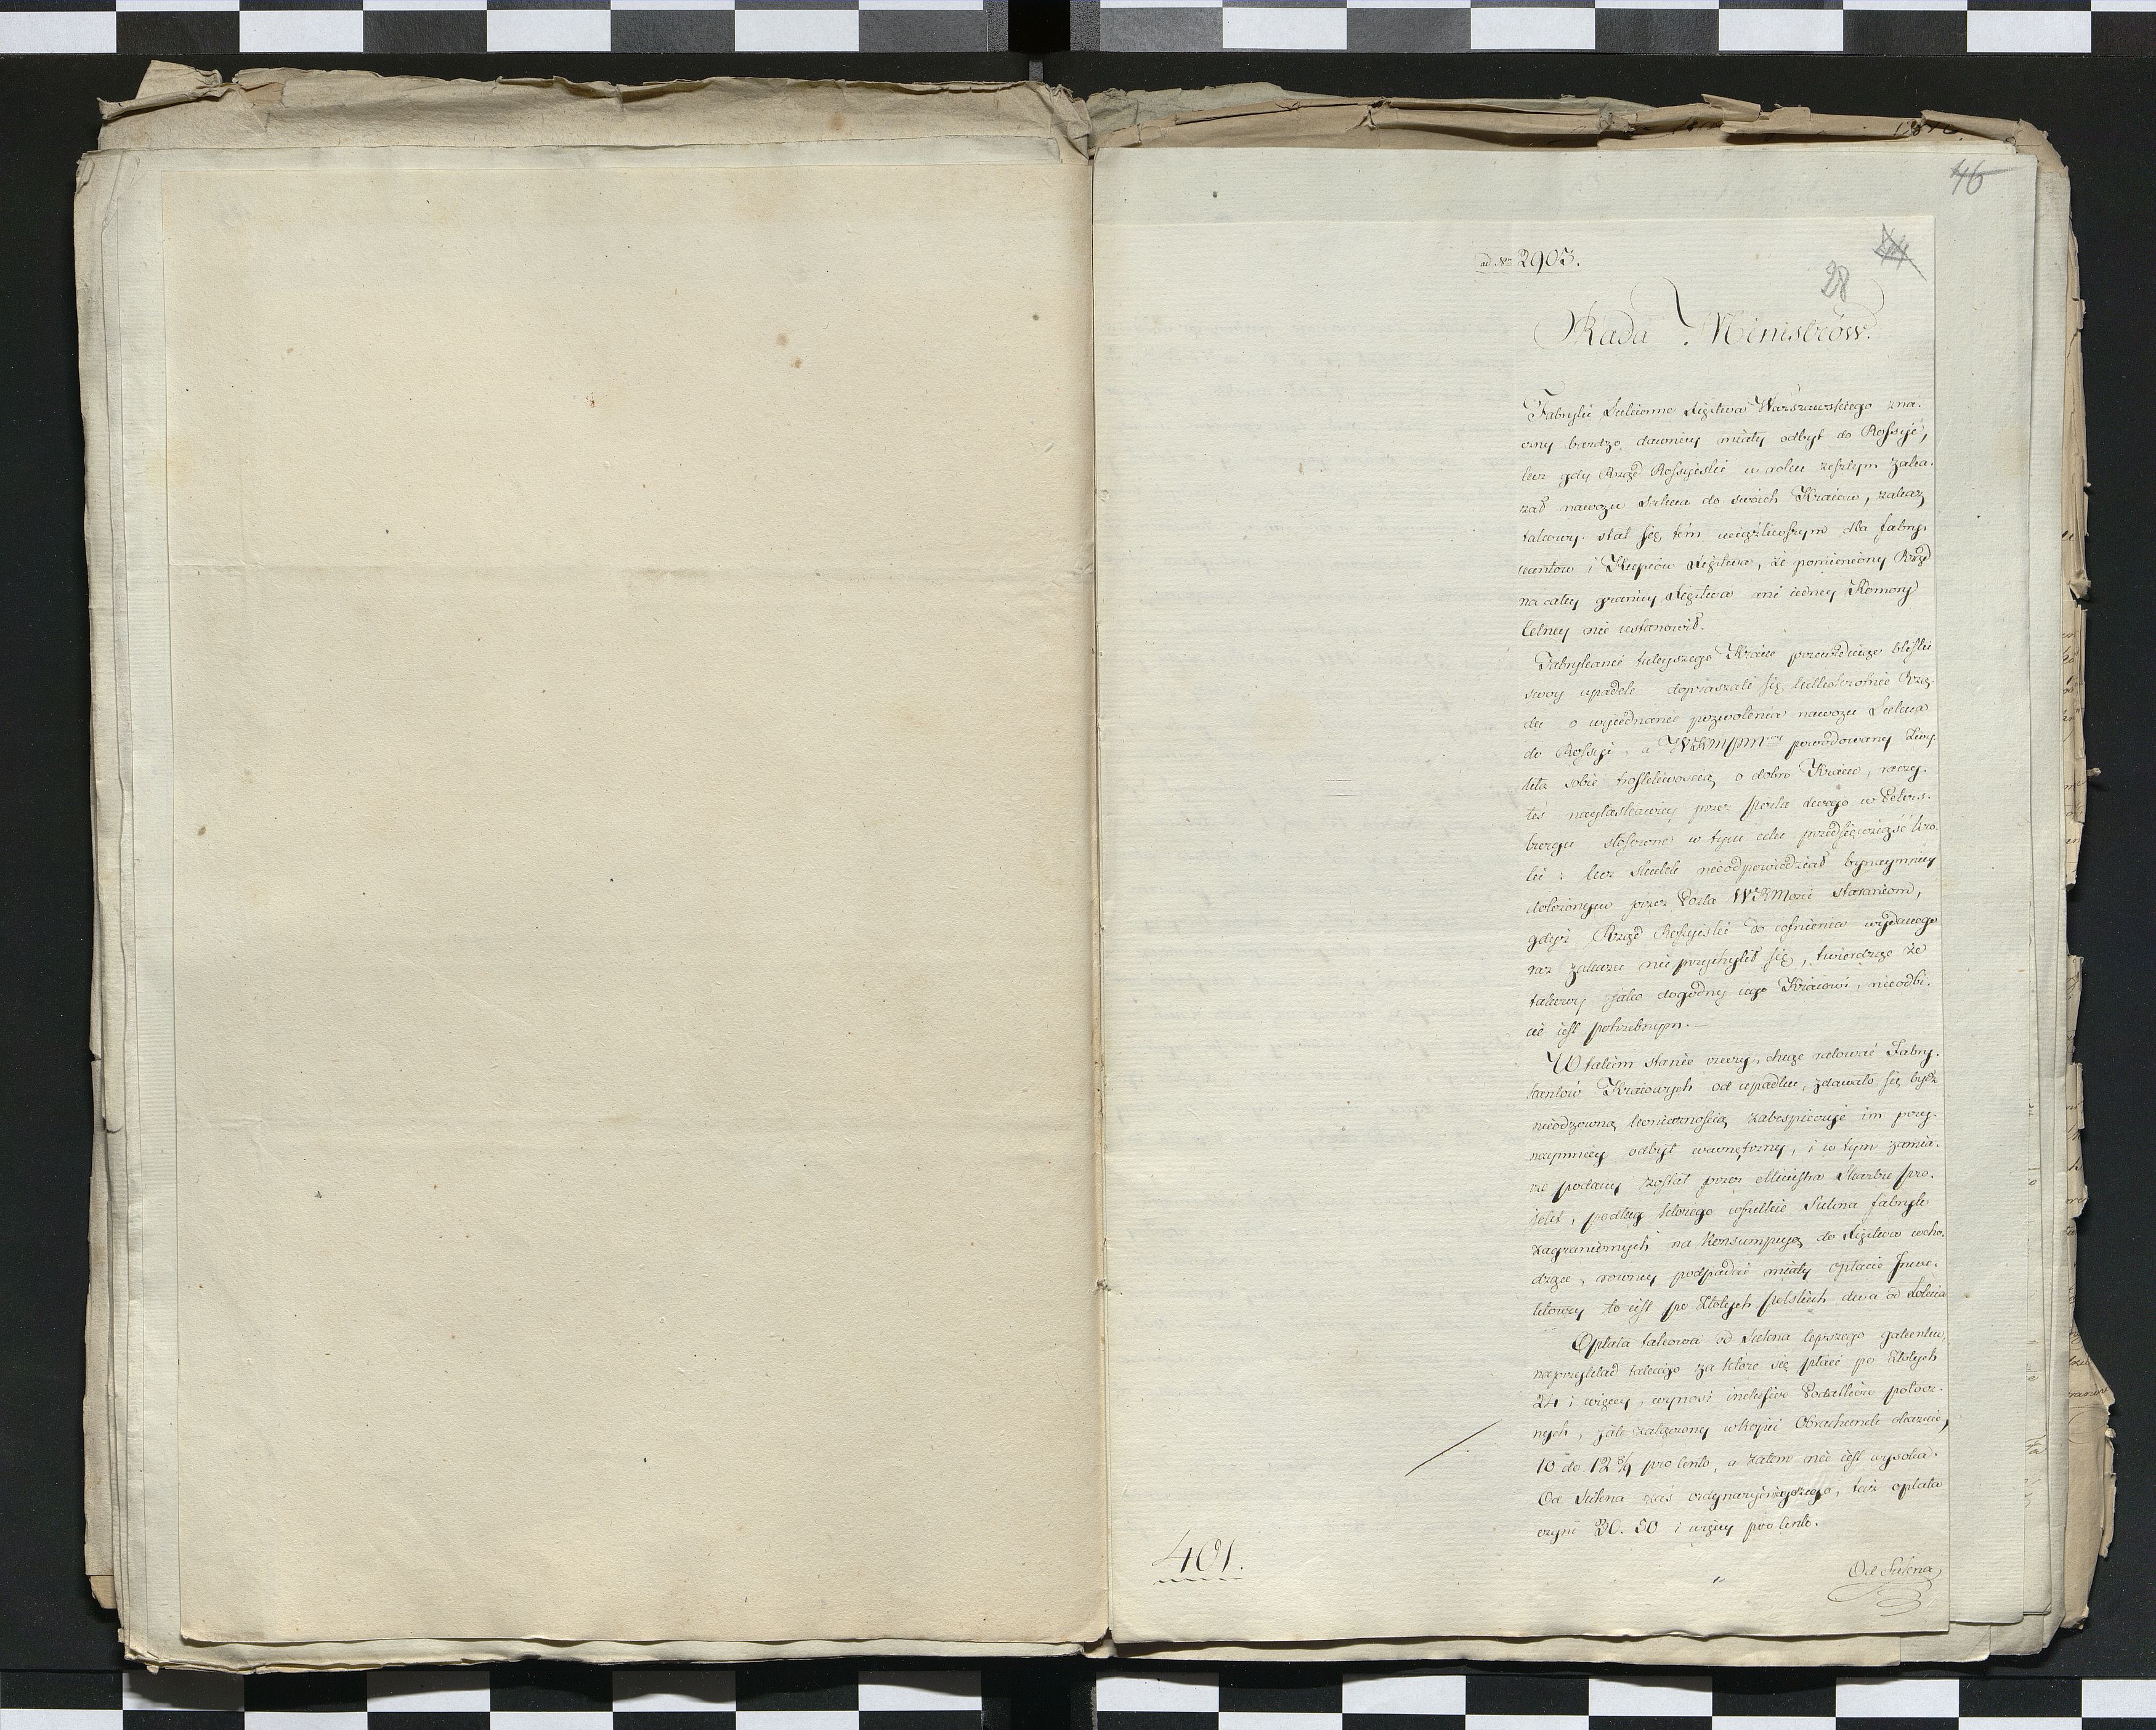 46
ad Nrm 2903.
28
Rada Ministrów.
Fabryki Sukienne Xięstwa Warszawskiego zna-
czny bardzo dawniey miały odbyt do Rossyi,
lecz gdy Rząd Rossyiski w roku zeszłym zaka-
zał nawozu Sukna do swoich Kraiow, zakaz
takowy stał się tém uciążliwszym dla fabry-
kantow i Kupcow Xięstwa, że pomieniony Rząd
na całey granicy Xięstwa ani iedney Komory
Celney nie ustanowił.
Fabrykanci tuteyszego Kraiu przewidując bliski
swoy upadek dopraszali się kilkokrotnie Rzą-
du o wyiednanie pozwolenia nawozu Sukna
do Rossyi, a WKMPM powodowany zwy-
kłą sobie troskliwoscią o dobro Kraiu, raczy-
łeś nayłaskawiey przez Posła swego w Peters-
burgu stosowne w tym celu przedsięwziąść kro-
ki: lecz skutek nieodpowiedział bynaymniey
dołożonym przez Posła WKMości staraniom,
gdyż Rząd Rossyiski do cofnienia wydanego
raz zakazu nie przychylił się, twierdząc że
takowy jako dogodny iego Kraiowi, nieodbi-
cie iest potrzebnym. —
W takim stanie rzeczy, chcąc ratować Fabry-
kantów Kraiowych od upadku, zdawało się bydź
nieodzowną koniecznością zabespieczyć im przy-
naymniey odbyt wewnętrzny, i w tym zamia-
rze podany został przez Ministra Skarbu pro-
jekt, podług którego wszelkie Sukna fabryk
zagranicznych na Konsumpcyą do Xięstwa wcho-
dzące, rowney podpadać miały opłacie
to iest po Złotych polskich dwa od Łokcia
Opłata takowa od Sukna lepszego gatunku,
naprzykład takiego za które się płaci po Złotych
24 i więcey, wynosi inclusive Podatkow pobocz-
nych, jak załączony w kopii Obrachunek okazuie,
10 do 12 pro Cento, a zatem nie iest wysoka.
Od Sukna zaś ordynaryinieyszego, taż opłata
czyni 30. 50 i więcey pro Cento.
Od Sukna
401.